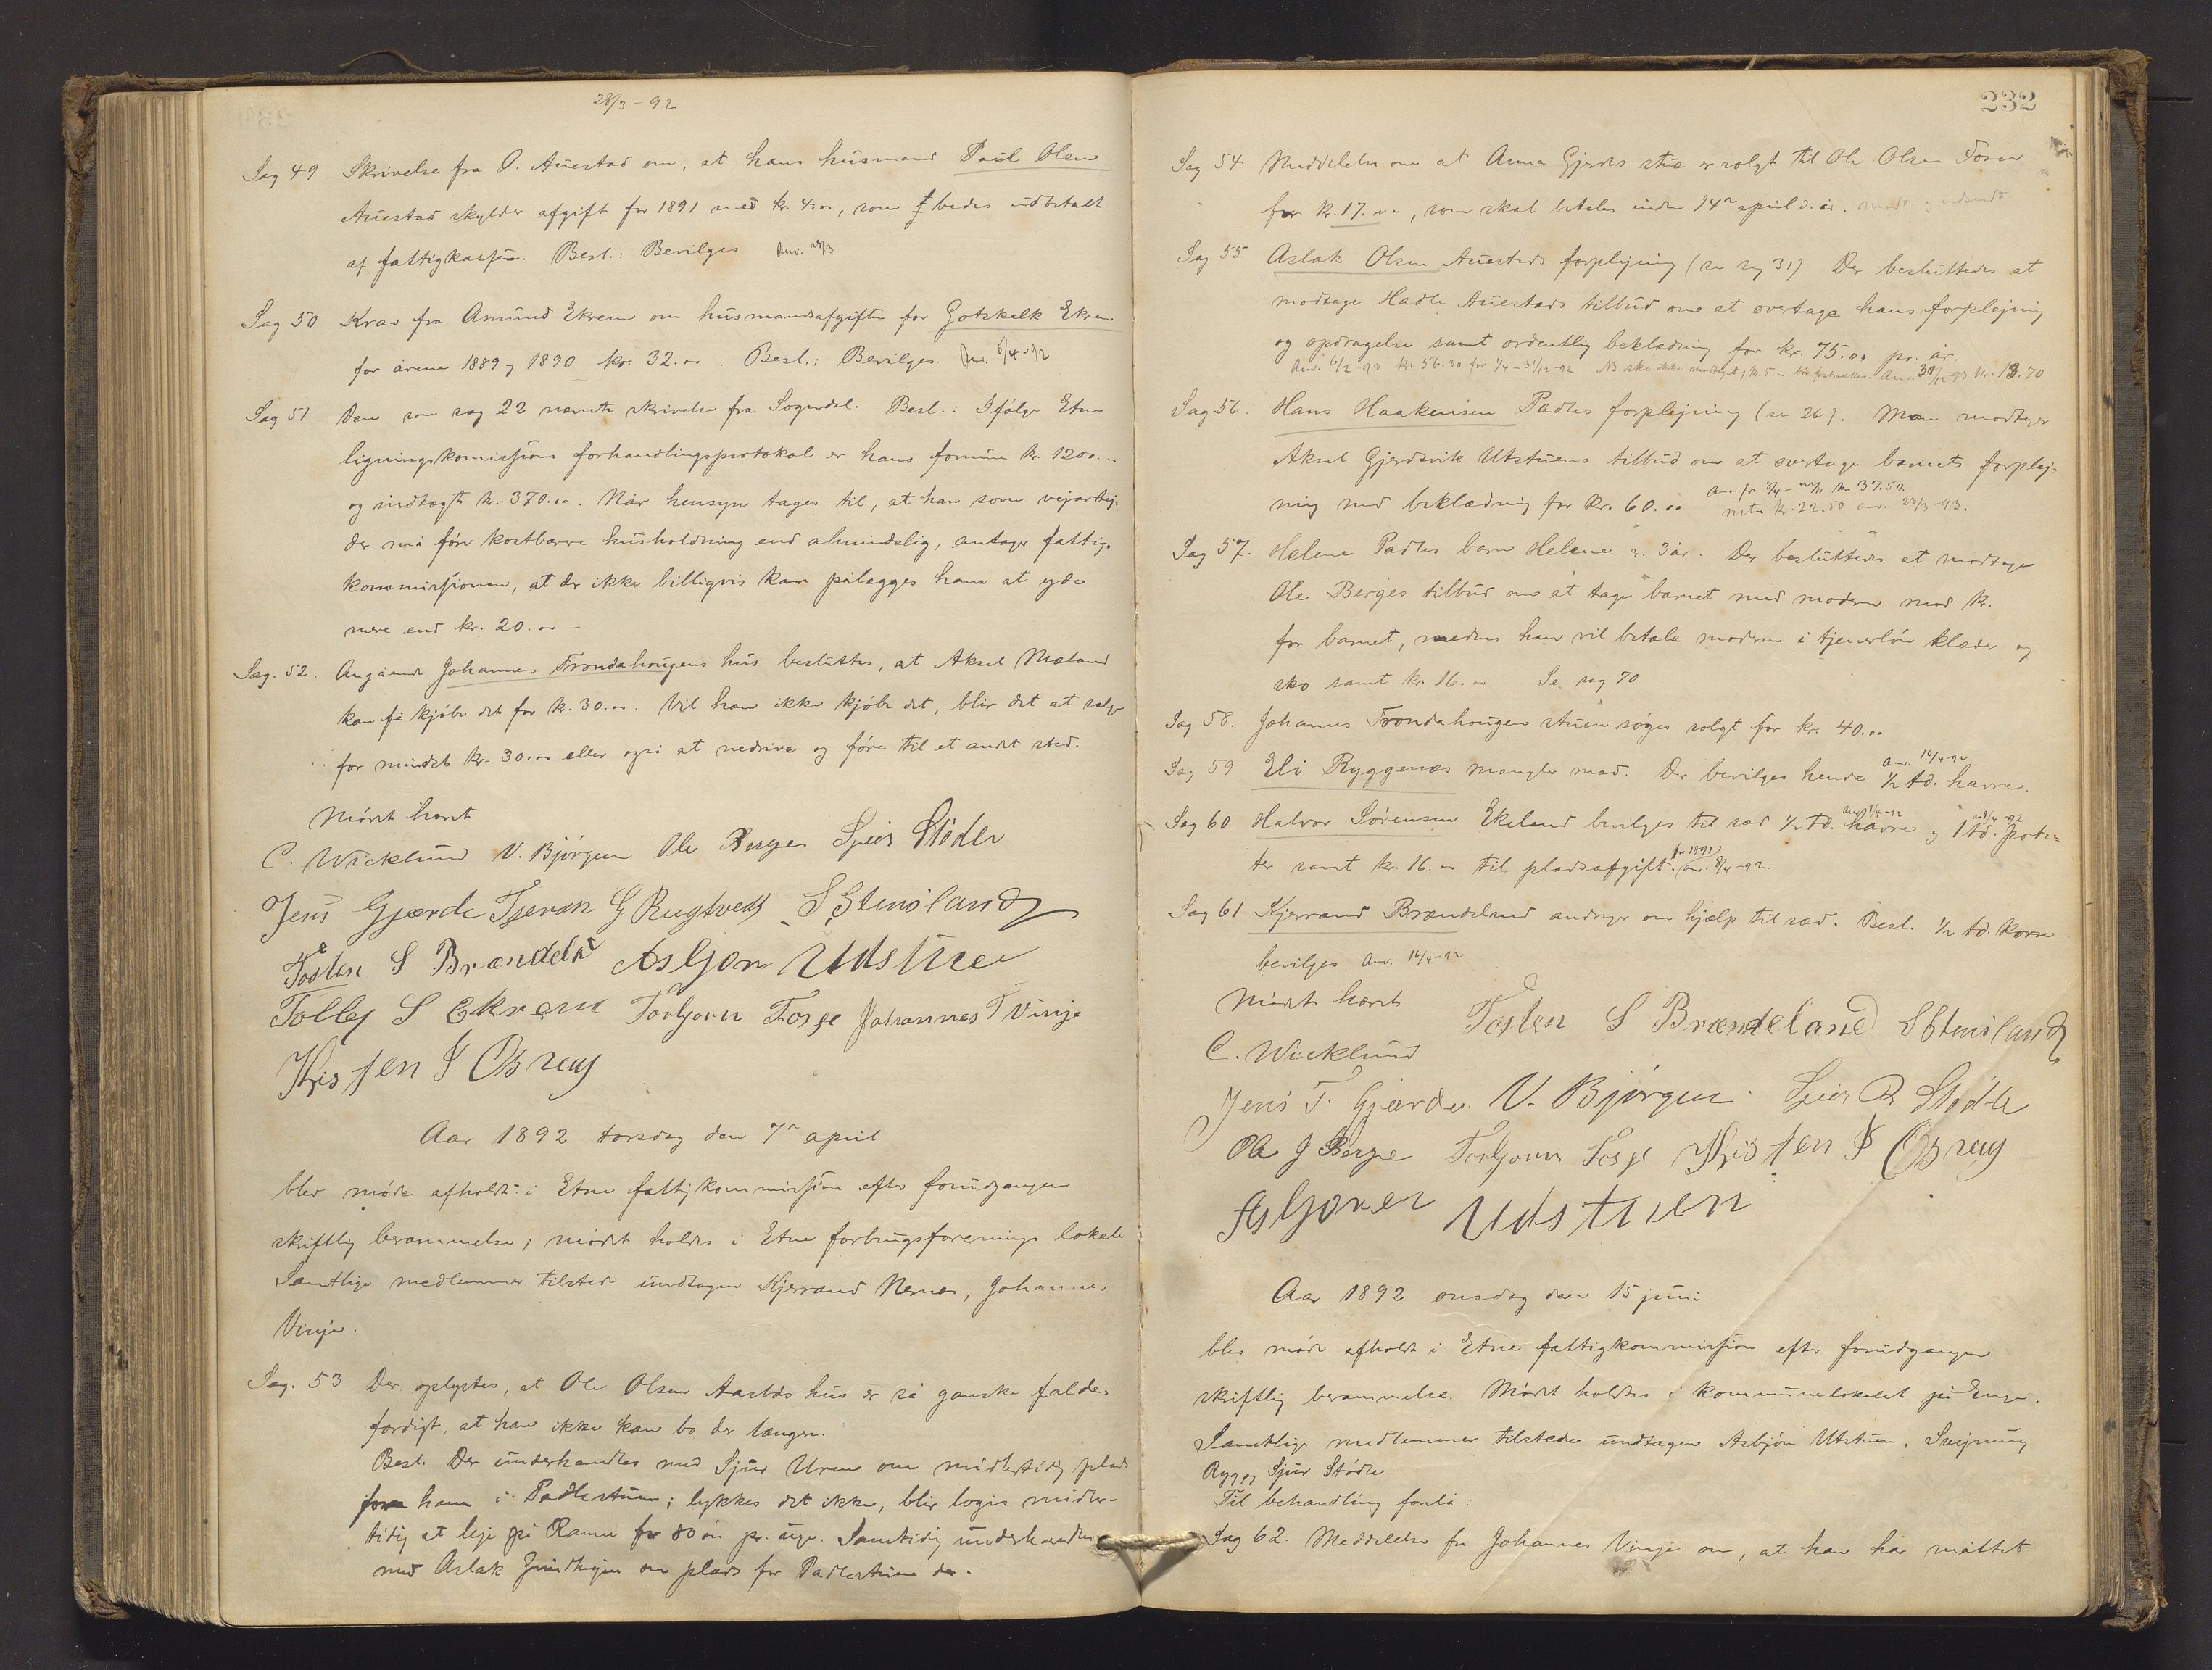 28/3-92
Sag 49 Skrivelse fra O. Auestad om, at hans husmand Paul Olsen
Auestad skylder afgift for 1891 med kr. 4.00, som bedes udbetalt
af fattigkassen. Besl.: Bevilges Anv. 29/3
Sag 50 Krav fra Amund Ekrem om husmandsafgiften for Gotskalk Ekrem
for årene 1889 og 1890 kr. 32.00. Besl.: Bevilges. Anv. 8/4-92
Sag 51 Den som sag 22 nævnte skrivelse fra Sogndal. Besl.: Ifølge Etne
ligningskomissjons forhandlingsprotokol er hans formue kr. 1200.-
og indtægt kr. 370.00. Når hensyn tages til, at han som vejarbej-
der må føre kostbarere husholdning end almindelig, antager fattig-
kommissjonen, at der ikke billigvis kan pålægges ham at yde
mere end kr. 20.00 -
Sag. 52. Angående Johannes Trondahougens hus besluttes, at Aksel Mæland
kan få kjøbe det for kr. 30.00. Vil han ikke kjøbe det, blir det at sælge
for mindst kr. 30.00 eller også at nedrive og føre til et andet sted.
Mødet hævet
C. Wicklund V. Bjørgen Ole Berge Sjur Stödle
Jens Gjærde Tjeran G Rugtvedt S Stensland
Tosten S Brændelå Asbjørn Udstue
Tollef S Ekrem Torbjørn Fosse Johannes T Vinje
Kristen J Østrey
Aar 1892 torsdag den 7de april
blev møde afholdt i Etne fattigkommissjon efter forudgangen
skriftlig berammelse; mødet holdes i Etne forbrugsforenings lokale
Samtlige medlemmer tilstede undtagen Kjerrand Nernes, Johannes
Vinje.
Sag. 53 Der oplystes, at Ole Olsen Aarbøs hus er så ganske falde-
færdigt, at han ikke kan bo der længer.
Besl. Der underhandles med Sjur Uren om midlertidig plads
for ham i Padlestuen; lykkes det ikke, blir logis midler-
tidig at leje på Ramn for 80 øre pr. uge. Samtidig underhandles
med Aslak om plads for Padlestuen der.
232
Sag 54 Meddelelse om at Anna Gjerdes stue er solgt til Ole Olsen Fosen
for kr. 17.00, som skal betales inden 14de april d. år.
Sag 55 Aslak Olsen Auestads forplejning (se sag 31) Der besluttedes at
modtage Hadle Auestads tilbud om at overtage hans forplejning
og opdragelse samt ordentlig beklædning for kr. 75.00 pr. år.
Anv. 6/2-93 kr. 56.30 for 1/4-31/12-92 NB sko ikke modtaget; kr. 5.00 bør fratrækkes. Anv. 30/12-93 kr. 18.70
Sag 56. Hans Haakensen Padles forplejning (se 26). Man modtager
Aksel Gjerdsvik Utstuens tilbud om at overtage barnets forplej-
ning med beklædning for kr. 60.00 kr. 37.50.
rest kr. 22.50 anv. 23/3-93.
Sag 57. Helene Padles barn Helene er 3 år. Der besluttedes at modtage
Ole Berges tilbud om at tage barnet med moderen mod kr.
for barnet, medens han vil betale moderen i tjenerløn klæder og
sko samt kr. 16.00 Se sag 70
Sag 58. Johannes Trondahougen stuen søges solgt for kr. 40.00
Sag 59 Eli Ryggenæs mangler mad. Der bevilges hende 1/2 td. havre. Anv. 14/4-92
Sag 60 Halvor Sørensen Ekeland bevilges til sæd 1/2 td. havre Anv. 8/4-92 og 1 td. pote-
ter samt kr. 16.00 til pladsafgift for 1891. Anv. 8/4-92.
Sag 61 Kjerrand Brændeland andrager om hjælp til sæd. Besl. 1/2 td. korn
bevilges Anv. 16/4-92
Mødet hævet
Tosten S Brændeland S Stensland
C. Wicklund
Jens T. Gjærde V. Bjørgen Sjur R Stödle
Ole J Berge Torbjørn Fosse Kristen J Østrey
Asbjøren Udstuen
Aar 1892 onsdag den 15 juni
blev møde afholdt i Etne fattigkommissjon efter forudgangen
skriftlig berammelse. Mødet holdtes i kommunelokalet på Enge.
Samtlige medlemmer tilstede undtagen Asbjørn Utstuen, Sveinung
Rygg og Sjur Stødle.
Til behandling forelå:
Sag 62. Meddelelse fra Johannes Vinje om, at han har måttet